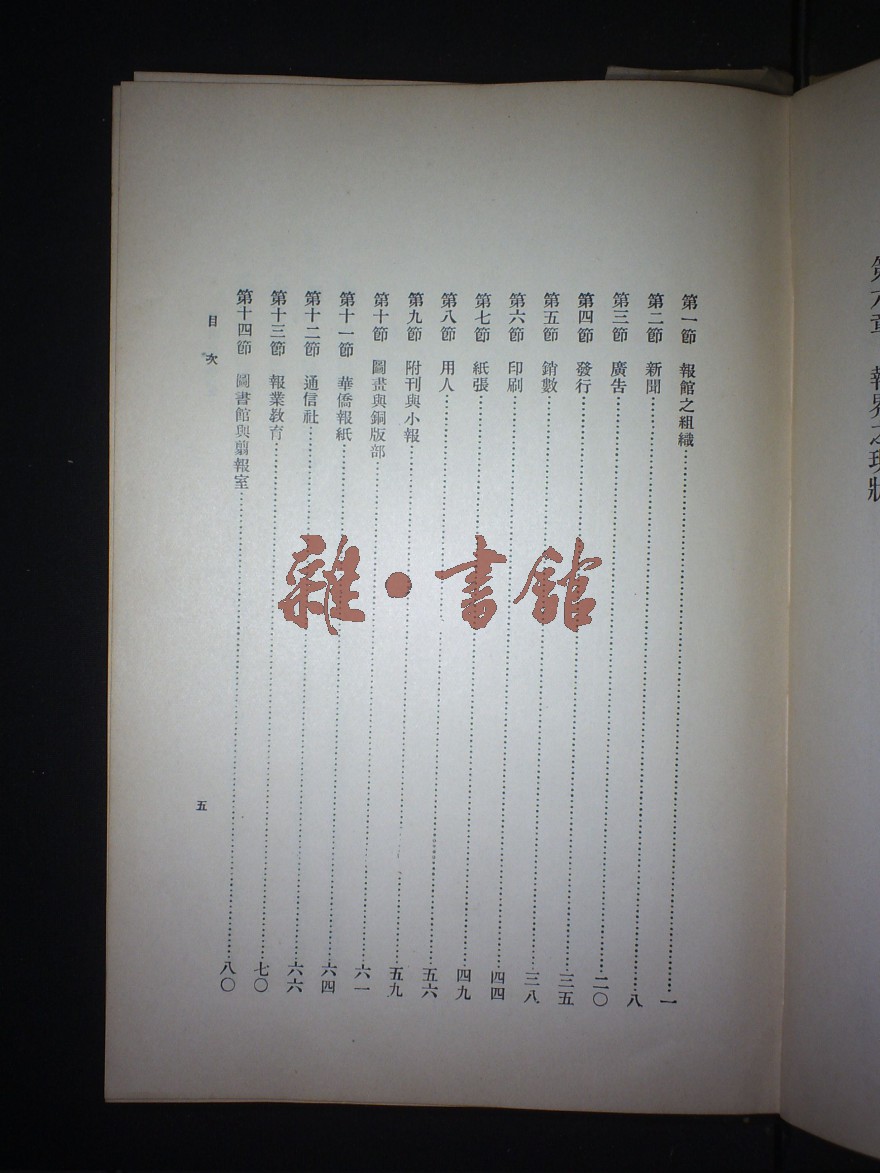 第六章 報界之現狀
第一節 報館之組織……一
第二節 新聞……八
第三節 廣告……二〇
第四節 發行……三五
第五節 銷數……三八
第六節 印刷……四四
第七節 紙張……四九
第八節 用人……五六
第九節 附刊與小報……五九
第十節 圖畫與銅版部……六一
第十一節 華僑報紙……六四
第十二節 通信社……六六
第十三節 報業教育……七〇
第十四節 圖書館與剪報室……八〇
目次
五
雜·書館